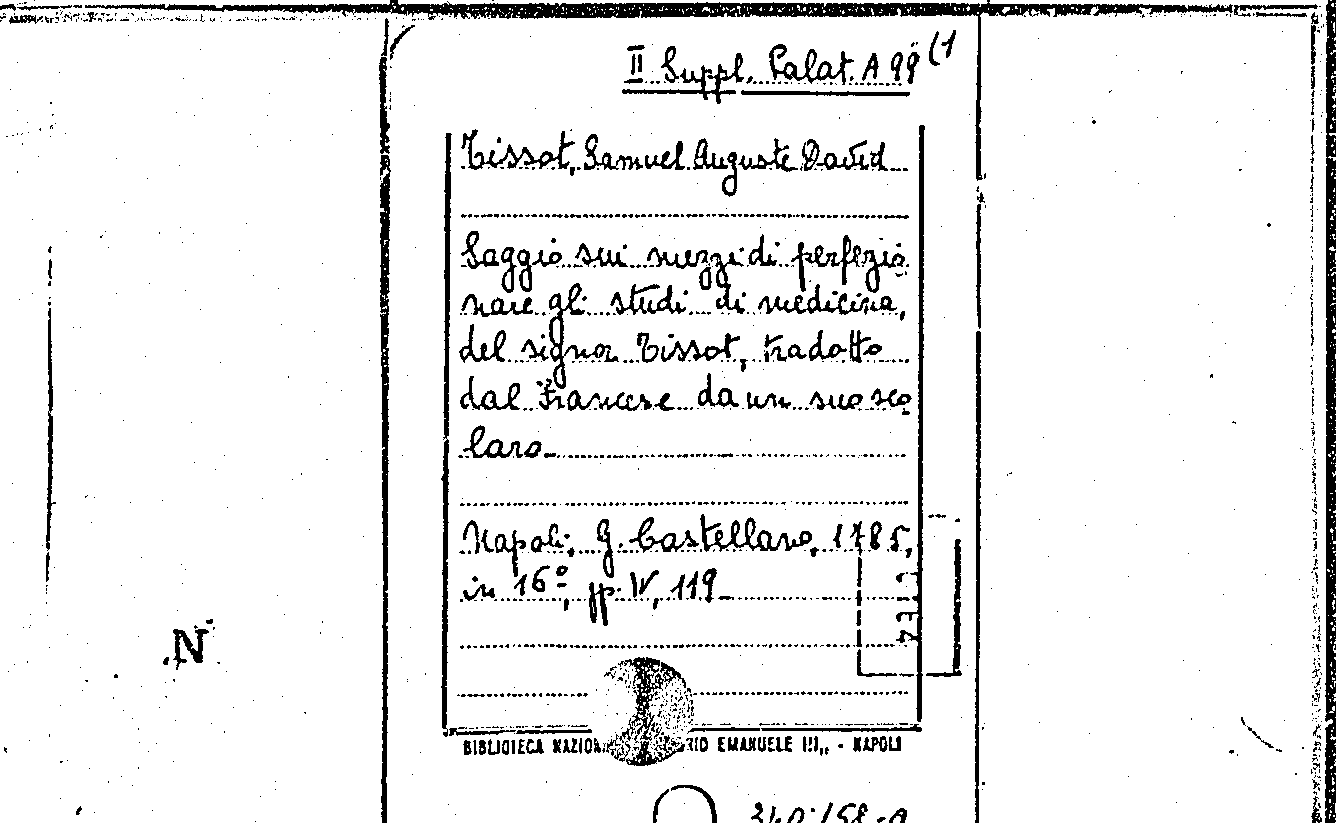 II Suppl. Palat. A 99 (1
Tissot, Samuel Auguste David
Saggio sui mezzi di perfezio
nare gli studi di medicina,
del signor Tissot, tradotto
dal Francese da un suo sco
laro.
Napoli, G. Castellano, 1785,
in 16º, pp. IV, 119.
N
BIBLIOTECA EMANUELE III,, - NAPOLI